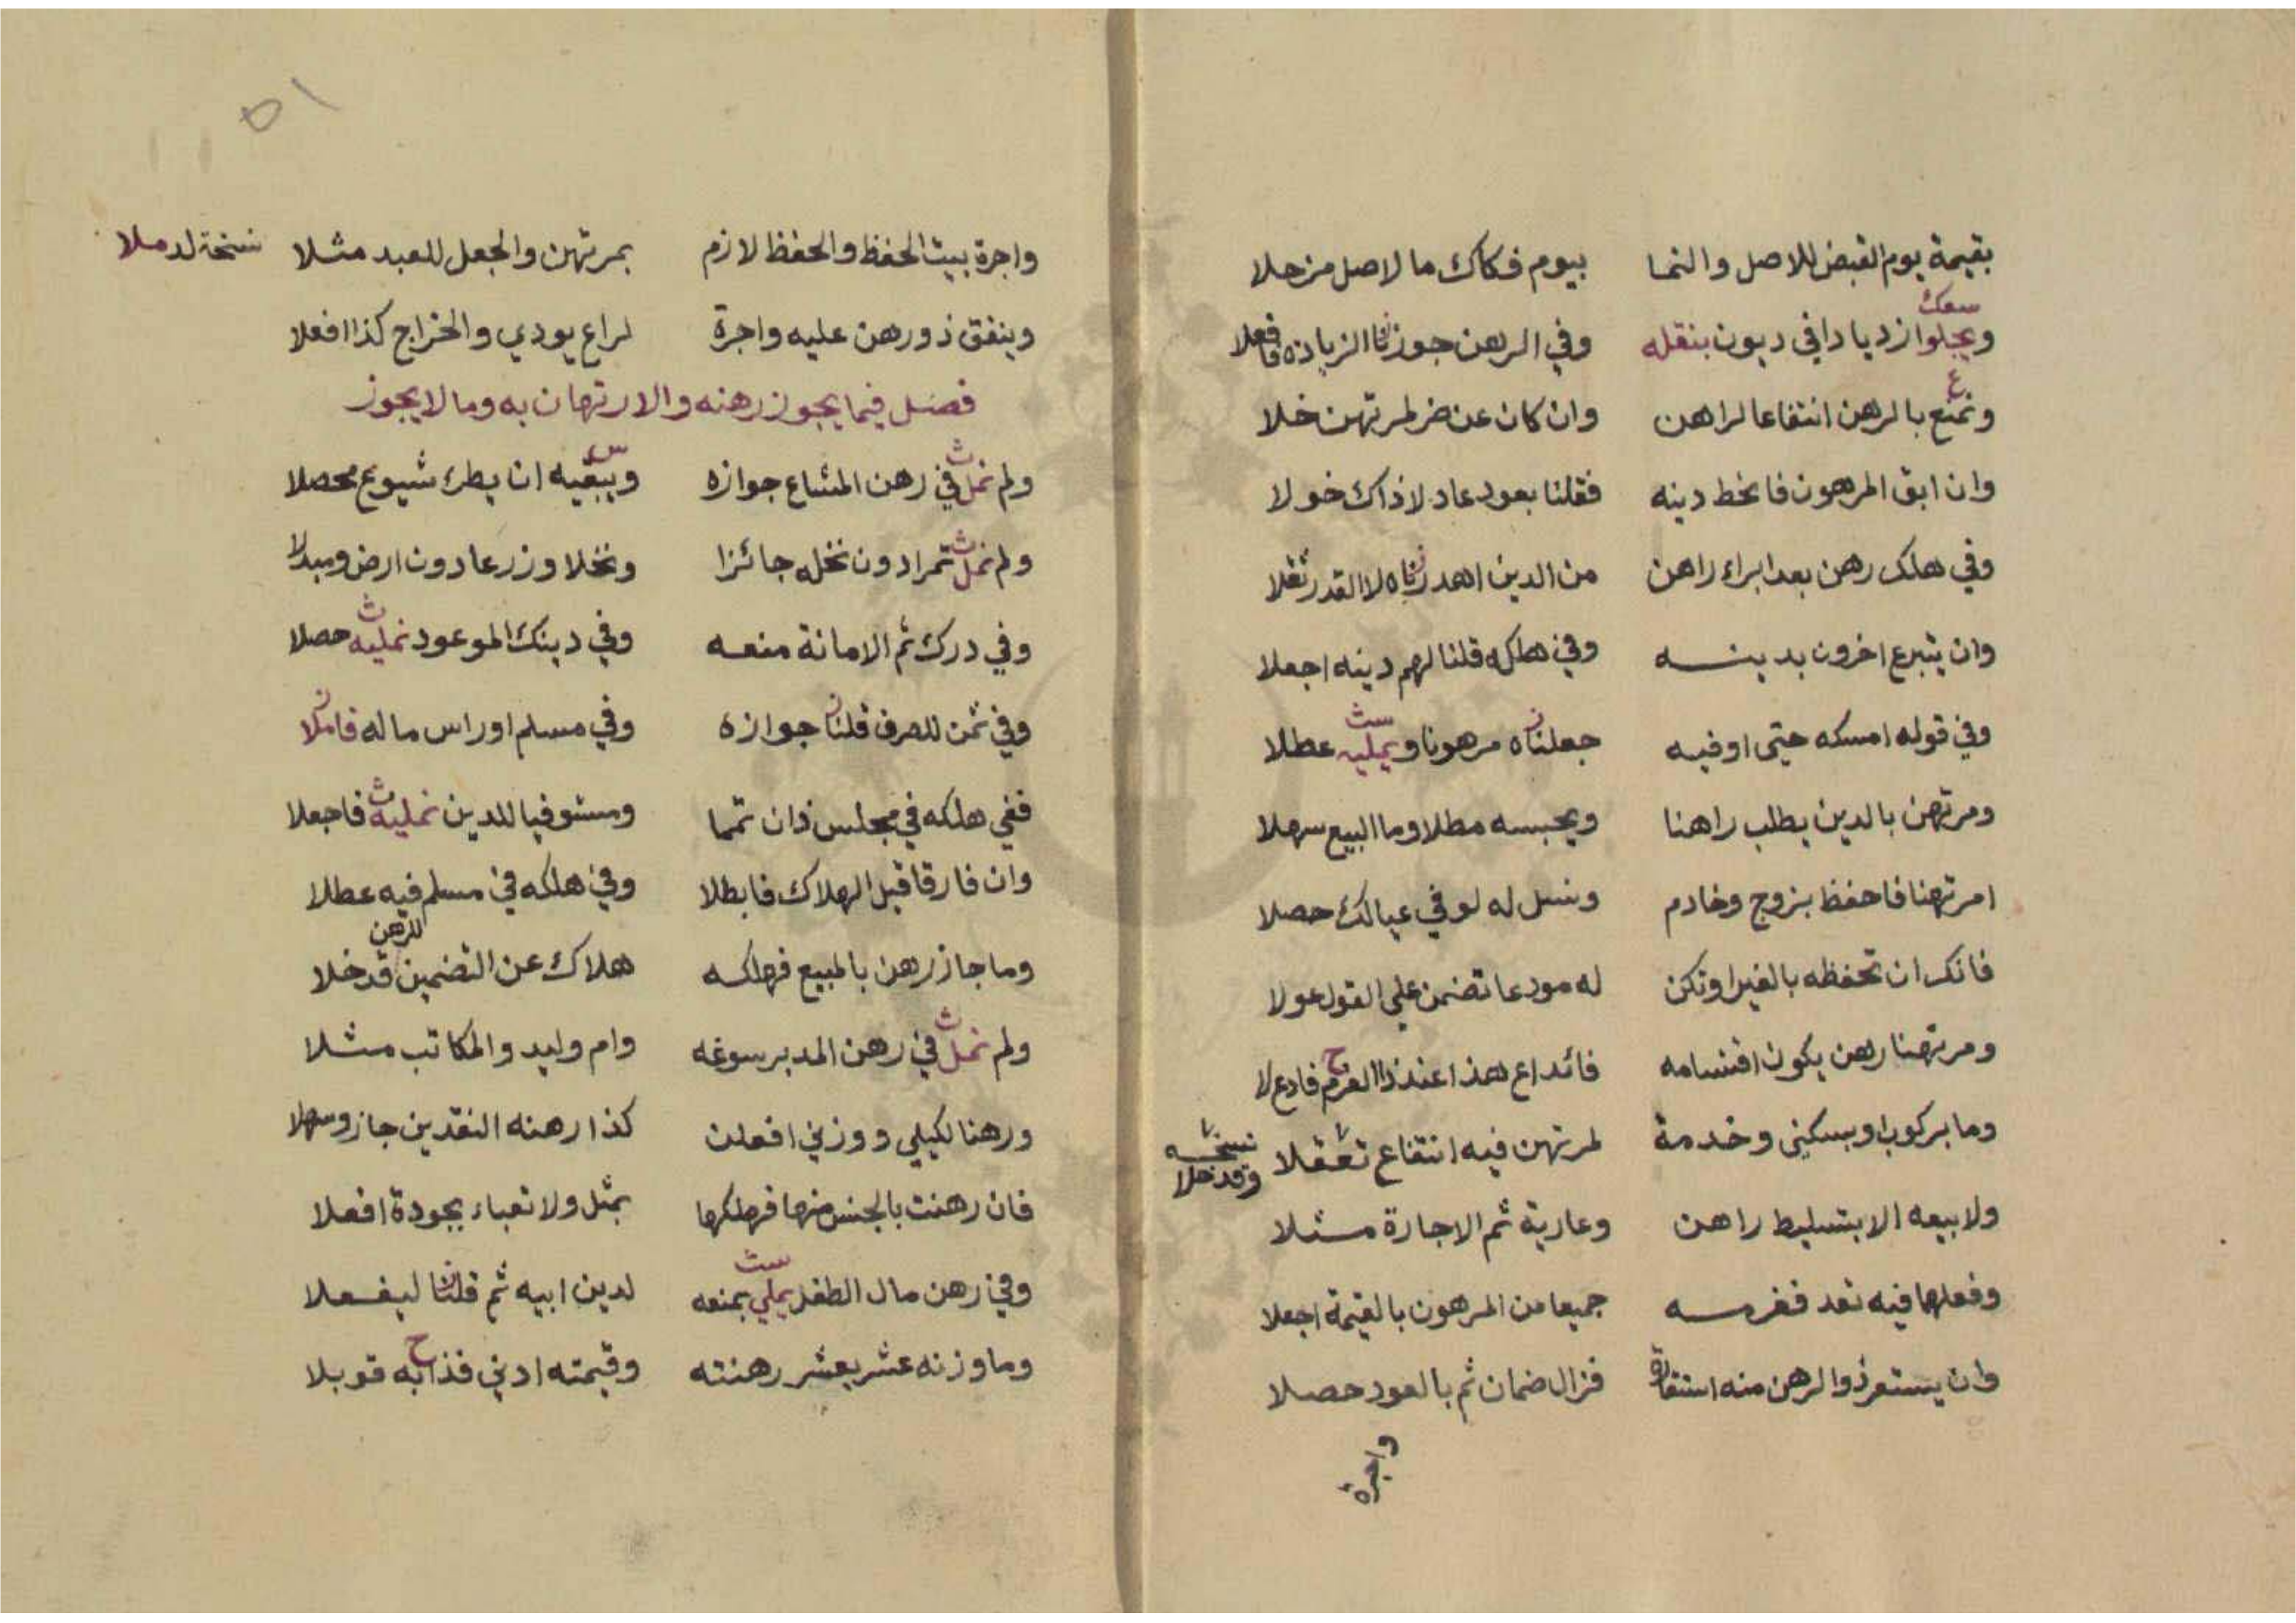 بقيمة يوم القبض للاصل والنما بيوم فكاك ما لاصل من حلا
سعك
ويجلوا ازديادا في ديون بنقله وفي الرهن جوزنا الزيادة فافعلا
ع
ونمنع بالرهن انتفاعا لراهن وان كان عن ضر لمرتهن خلا
وان ابق المرهون فانحط دينه فقلنا بعود عاد لا ذاك خولا
وفي هلك رهن بعد ابراء راهن من الدين اهدرناه لا القدر ثقلا
وان يتبرع اخرون بدينه وفي هلكه قلنا لهم دينه اجعلا
ست
وفي قوله امسكه حتى اوفيه جعلناه مرهونا ويمليه عطلا
ومرتهن بالدين يطلب راهنا ويحبسه مطلا وما البيع سهلا
امرتهنا فاحفظ بزوج وخادم ونسل له لو في عيالك حصلا
فانك ان تحفظه بالغير او تكن له مودعا تضمن علي القول عولا
ح
ومرتهنا رهن يكون اقتسامه فائداع هذا عند ذا الغرم فادع لا
وما بركوب او بسكنى وخدمة لمرتهن فيه انتفاع تعقلا نسخه وقد خلا
ولا بيعه الا بتسليط راهن وعارية ثم الاجارة مثلا
وفعلها فيه تعد فغرمه جميعا من المرهون بالقيمة اجعلا
وان يستعر ذو الرهن منه فزال ضمان ثم بالعود حصلا
واجرة
٥١
واجرة بيت الحفظ والحفظ لازم بمرتهن والجعل للعبد مثلا نسخة لدملا
وينفق ذو رهن عليه واجرة لراع يودي والخراج كذا افعلا
فصل فيما يجوز رهنه والارتهان به وما لا يجوز
ث
ولم نمل في رهن المشاع جوازه ويبقيه ان يطرء شيوع محصلا
ث
ولم نمل تمرا دون نخله جائزا ونخلا وزرعا دون ارض ومبدلا
ث
وفي درك ثم الامانة منعه وفي دينك الموعود نمليه حصلا
وفي ثمن للصرف قلنا جوازه وفي مسلم او راس ماله فاملا
ث
ففي هلكه في مجلس ذان تمما ومستوفيا للدين نمليه فاجعلا
وان فارقا قبل الهلاك فابطلا وفي هلكه في مسلم فيه عطلا
للرهن
وما جاز رهن بالمبيع فهلكه هلاك عن التضمين قد خلا
ث
ولم نمل في رهن المدبر سوغه وام وليد والمكاتب مثلا
ورهنا لكيلي ووزني افعلن كذا رهنه النقدين جاز وسهلا
فان رهنت بالجنس منها فهلكها بمثل ولا تعباء بجودة افعلا
ست
وفي رهن مال الطفل يملي بمنعه لدين ابيه ثم قلنا ليفعلا
ح
وما وزنه عشر بعشر رهنته وقيمته ادني فذا به قوبلا